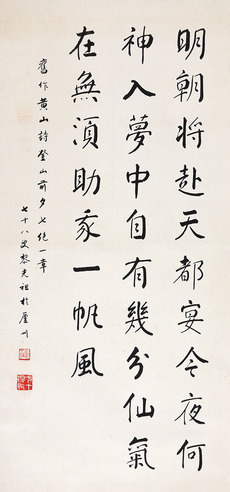 明朝将赴天都宴今夜何
神入夢中自有幾分仙氣
在無須助我一帆風
舊作黄山詩登山前夕七絕一章
七十八叟黎光祖於廬州